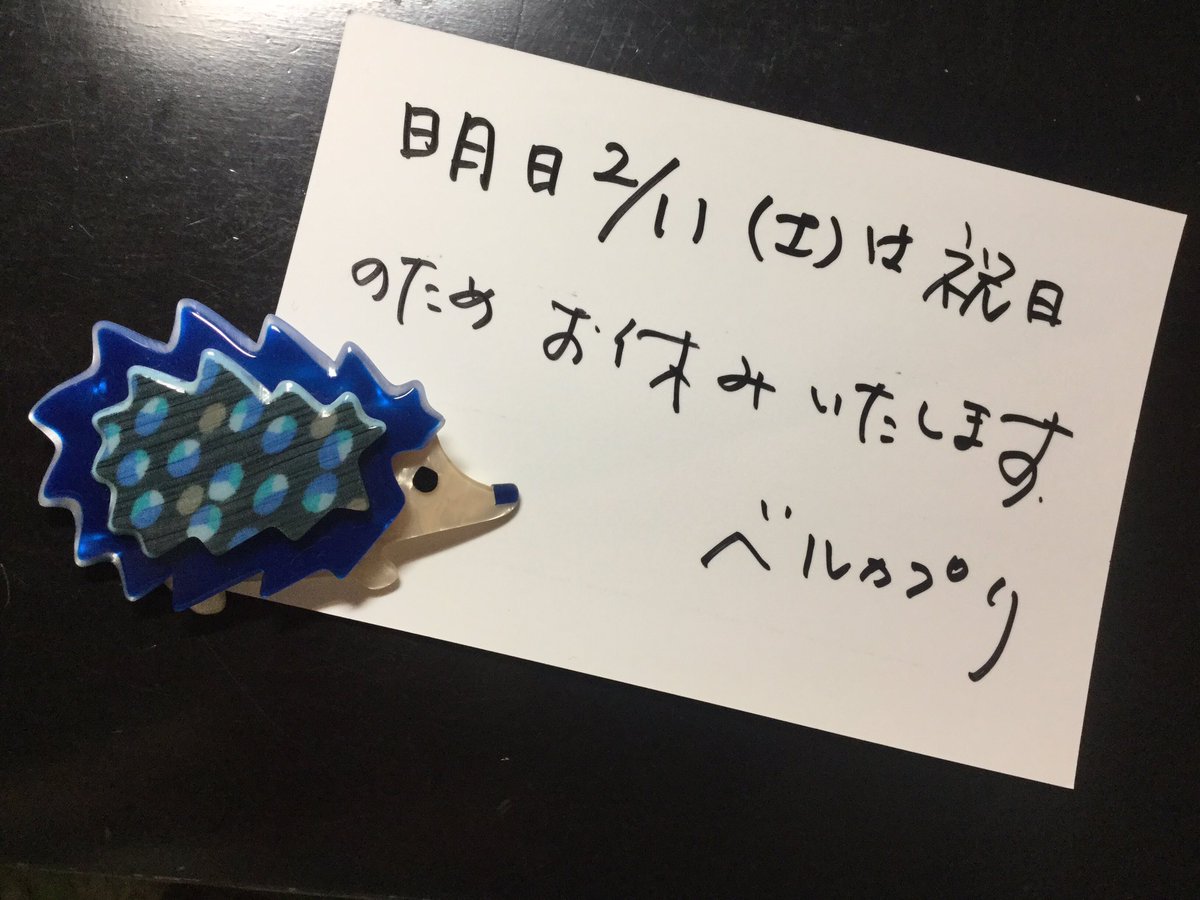 明日2/11(土)は祝日
のためお休みいたします.
ベルカプリ